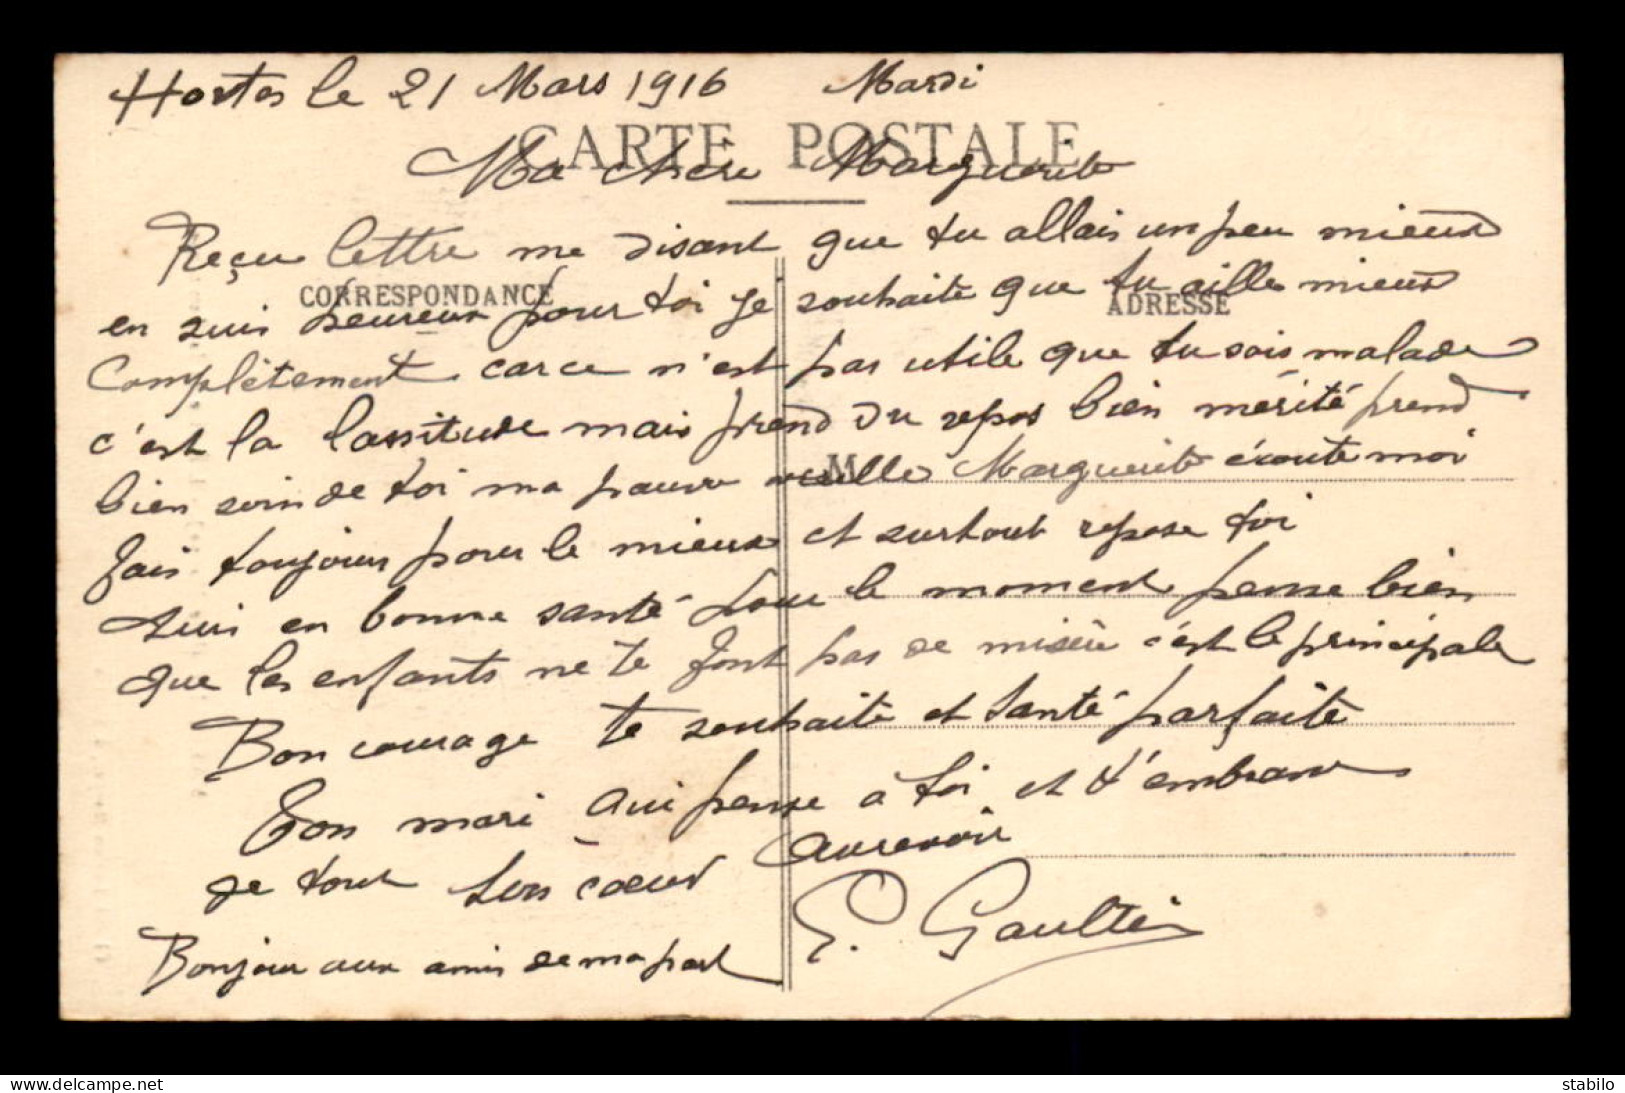 Hortes le 21 Mars 1916 Mardi
CARTE POSTALE
Ma chère Marguerite
Reçu lettre me disant que tu allais un peu mieux
CORRESPONDANCE
ADRESSE
en suis heureux pour toi je souhaite que tu ailles mieux
Complètement car ce n'est pas utile que tu sois malade
c'est la lassitude mais prend du repos bien mérité prend
bien soin de toi ma pauvre vieille Marguerite écoute moi
M
fais toujours pour le mieux et surtout repose toi
suis en bonne santé pour le moment pense bien
que les enfants ne te font pas de misère c'est le principale
Bon courage te souhaite et santé parfaite
Ton mari qui pense à toi et t'embrasse
de tout son cœur Aurevoir
E. Gaultier
Bonjour aux amis de ma part
www.delcampe.net
stabilo